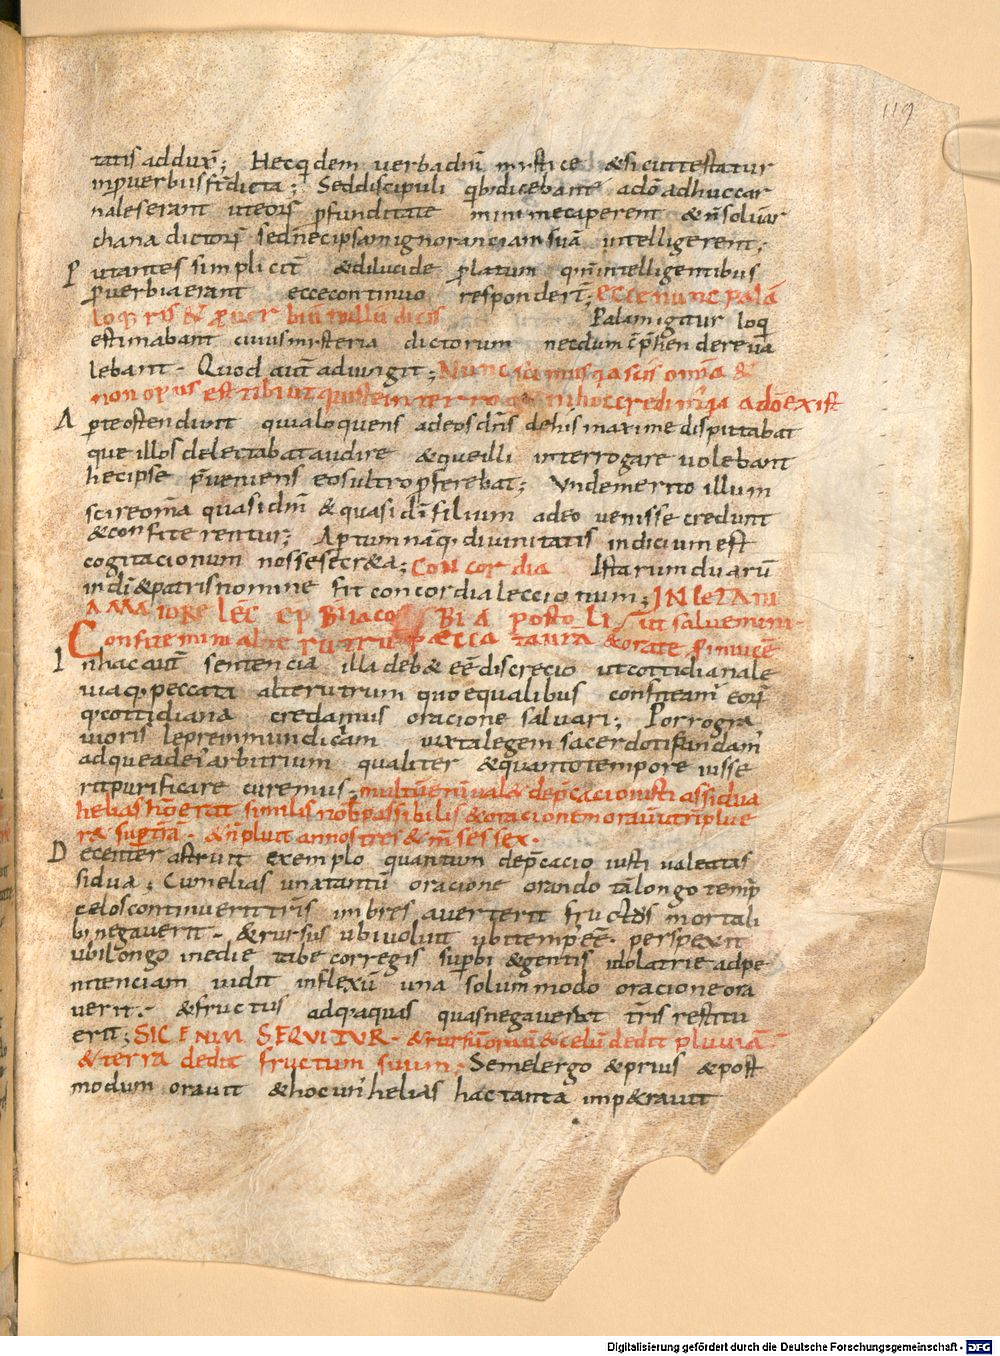 119
tatis addux̄; Hec q̇dem verba dn̄i mystice & sicut testatur
in ꝓverbiis s̄ dicta; Sed discipuli q̇b; dicebant᷑ adō adhuc car
nales erant ut eoris ꝓfunditate minime caperent & n̄ solū ar
chana dictorū sed nec ipsam ignoranciam suā intelligerent;
Putantes simplicit̄ & dilucide ꝓlatum qm̄ intelligentibus
ꝓverbia erant ecce continuo responder̄; ecce nunc palā
loq̄ris & ꝓverbiū nullū dicis Palam igitur loq̇
estimabant cuius mysteria dictorum necdum cp̄hendere va
lebant. Quod aut̄ adiungit; Nunc scimus q̇a scis omīa &
non opus est tibi ut quis te interroget in hoc credim; q̇a adō exist
Aperte ostendunt quia loquens ad eos dn̄s de his maxime disputabat
que illos delectabat audire & que illi interrogare volebant
hec ipse p̄veniens eos ultro ꝓferebat; Unde merito illum
scire om̄a quasi dm̄ & quasi di filium adeo venisse credunt
& confiterentur; Aptum namq; divinitatis indicium est
cogitacionum nosse secr&a; Concordia Istarum duarū
in dī & patris nomine fit concordia leccionum; IN LETANI
A MAIORE LEC̄ EP̄ B̄ IACOBI APOSTOLI
Confitemini alterutrum peccata v̄ra & orate ꝓ invicē ut salvemini.
In hac aut̄ sentencia illa deb& eē discrecio ut cottidiana le
viaq; peccata alterutrum quoequalibus confiteam̄ eorū
q; cottidiana credamus oracione salvari; Porro gra
vioris lepre inmundiciam iuxta legem sacerdoti pandam̄
adque ad ei᷒ arbitrium qualiter & quanto tempore iusse
rit purificare curemus. multū enī val& dep̄cacio iusti assidua
helias hō erat similis nob̄ passibilis & oracionem oravit ut n̄ plue
r& sup̄ t̄rā. & n̄ pluit annos tres & m̄ses sex.
Decenter astruit exemplo quantum dep̄cacio iusti valeat as
sidua; Cum elias una tantū oracione orando tā longo temp̄
celos continuerit t̄ris imbres averterit fructus mortali
b; negaverit. & rursus ubi voluit ubi tempus eē. perspexit
ubi longo inedie tabe cor regis sup̄bi & gentis idolatrie ad pe
nitenciam vidit inflexū una solummodo oracione ora
verit. & fructus adq; aquas quas negaverat t̄ris restitu
erit; SIC ENIM SEQUITUR. & rursū oravit & celū dedit pluviā.
& terra dedit fructum suum. Semel ergo & prius & post
modum oravit & hoc vir helias hac tanta imp&ravit
Digitalisierung gefördert durch die Deutsche Forschungsgemeinschaft - DFG